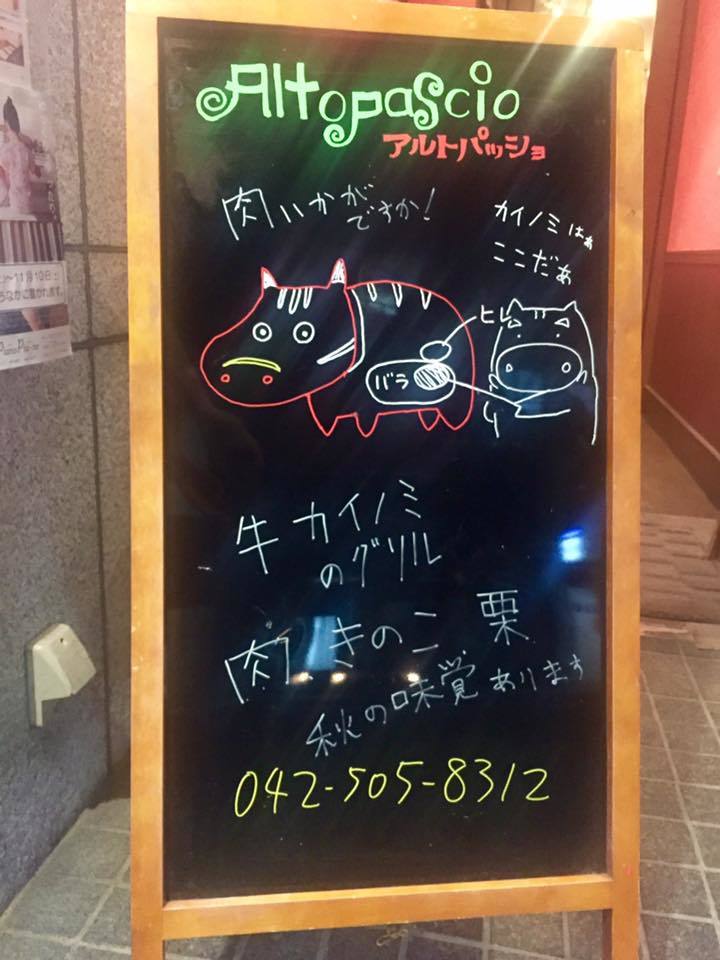 Altopascio
アルトパッショ
肉いかが
ですか!
カイノミはぁ
ここだぁ
ヒレ
バラ
牛カイノミ
のグリル
肉 きのこ 栗
秋の味覚あります
042-505-8312